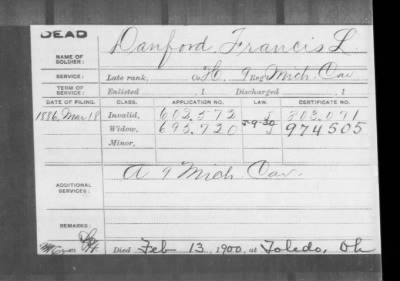 DEAD
NAME OF SOLDIER: Danford, Francis L.
SERVICE: Late rank, Co. H, 9 Reg't Mich. Cav
TERM OF SERVICE: Enlisted , 1 Discharged , 1
DATE OF FILING. CLASS. APPLICATION NO. LAW. CERTIFICATE NO.
1886, Mar 18 Invalid, 602.572 803.091
Widow, 693.720 5-9-30 974505
Minor,
ADDITIONAL SERVICES: A 9 Mich. Cav.
REMARKS:
Died Feb 13, 1900, at Toledo, Oh